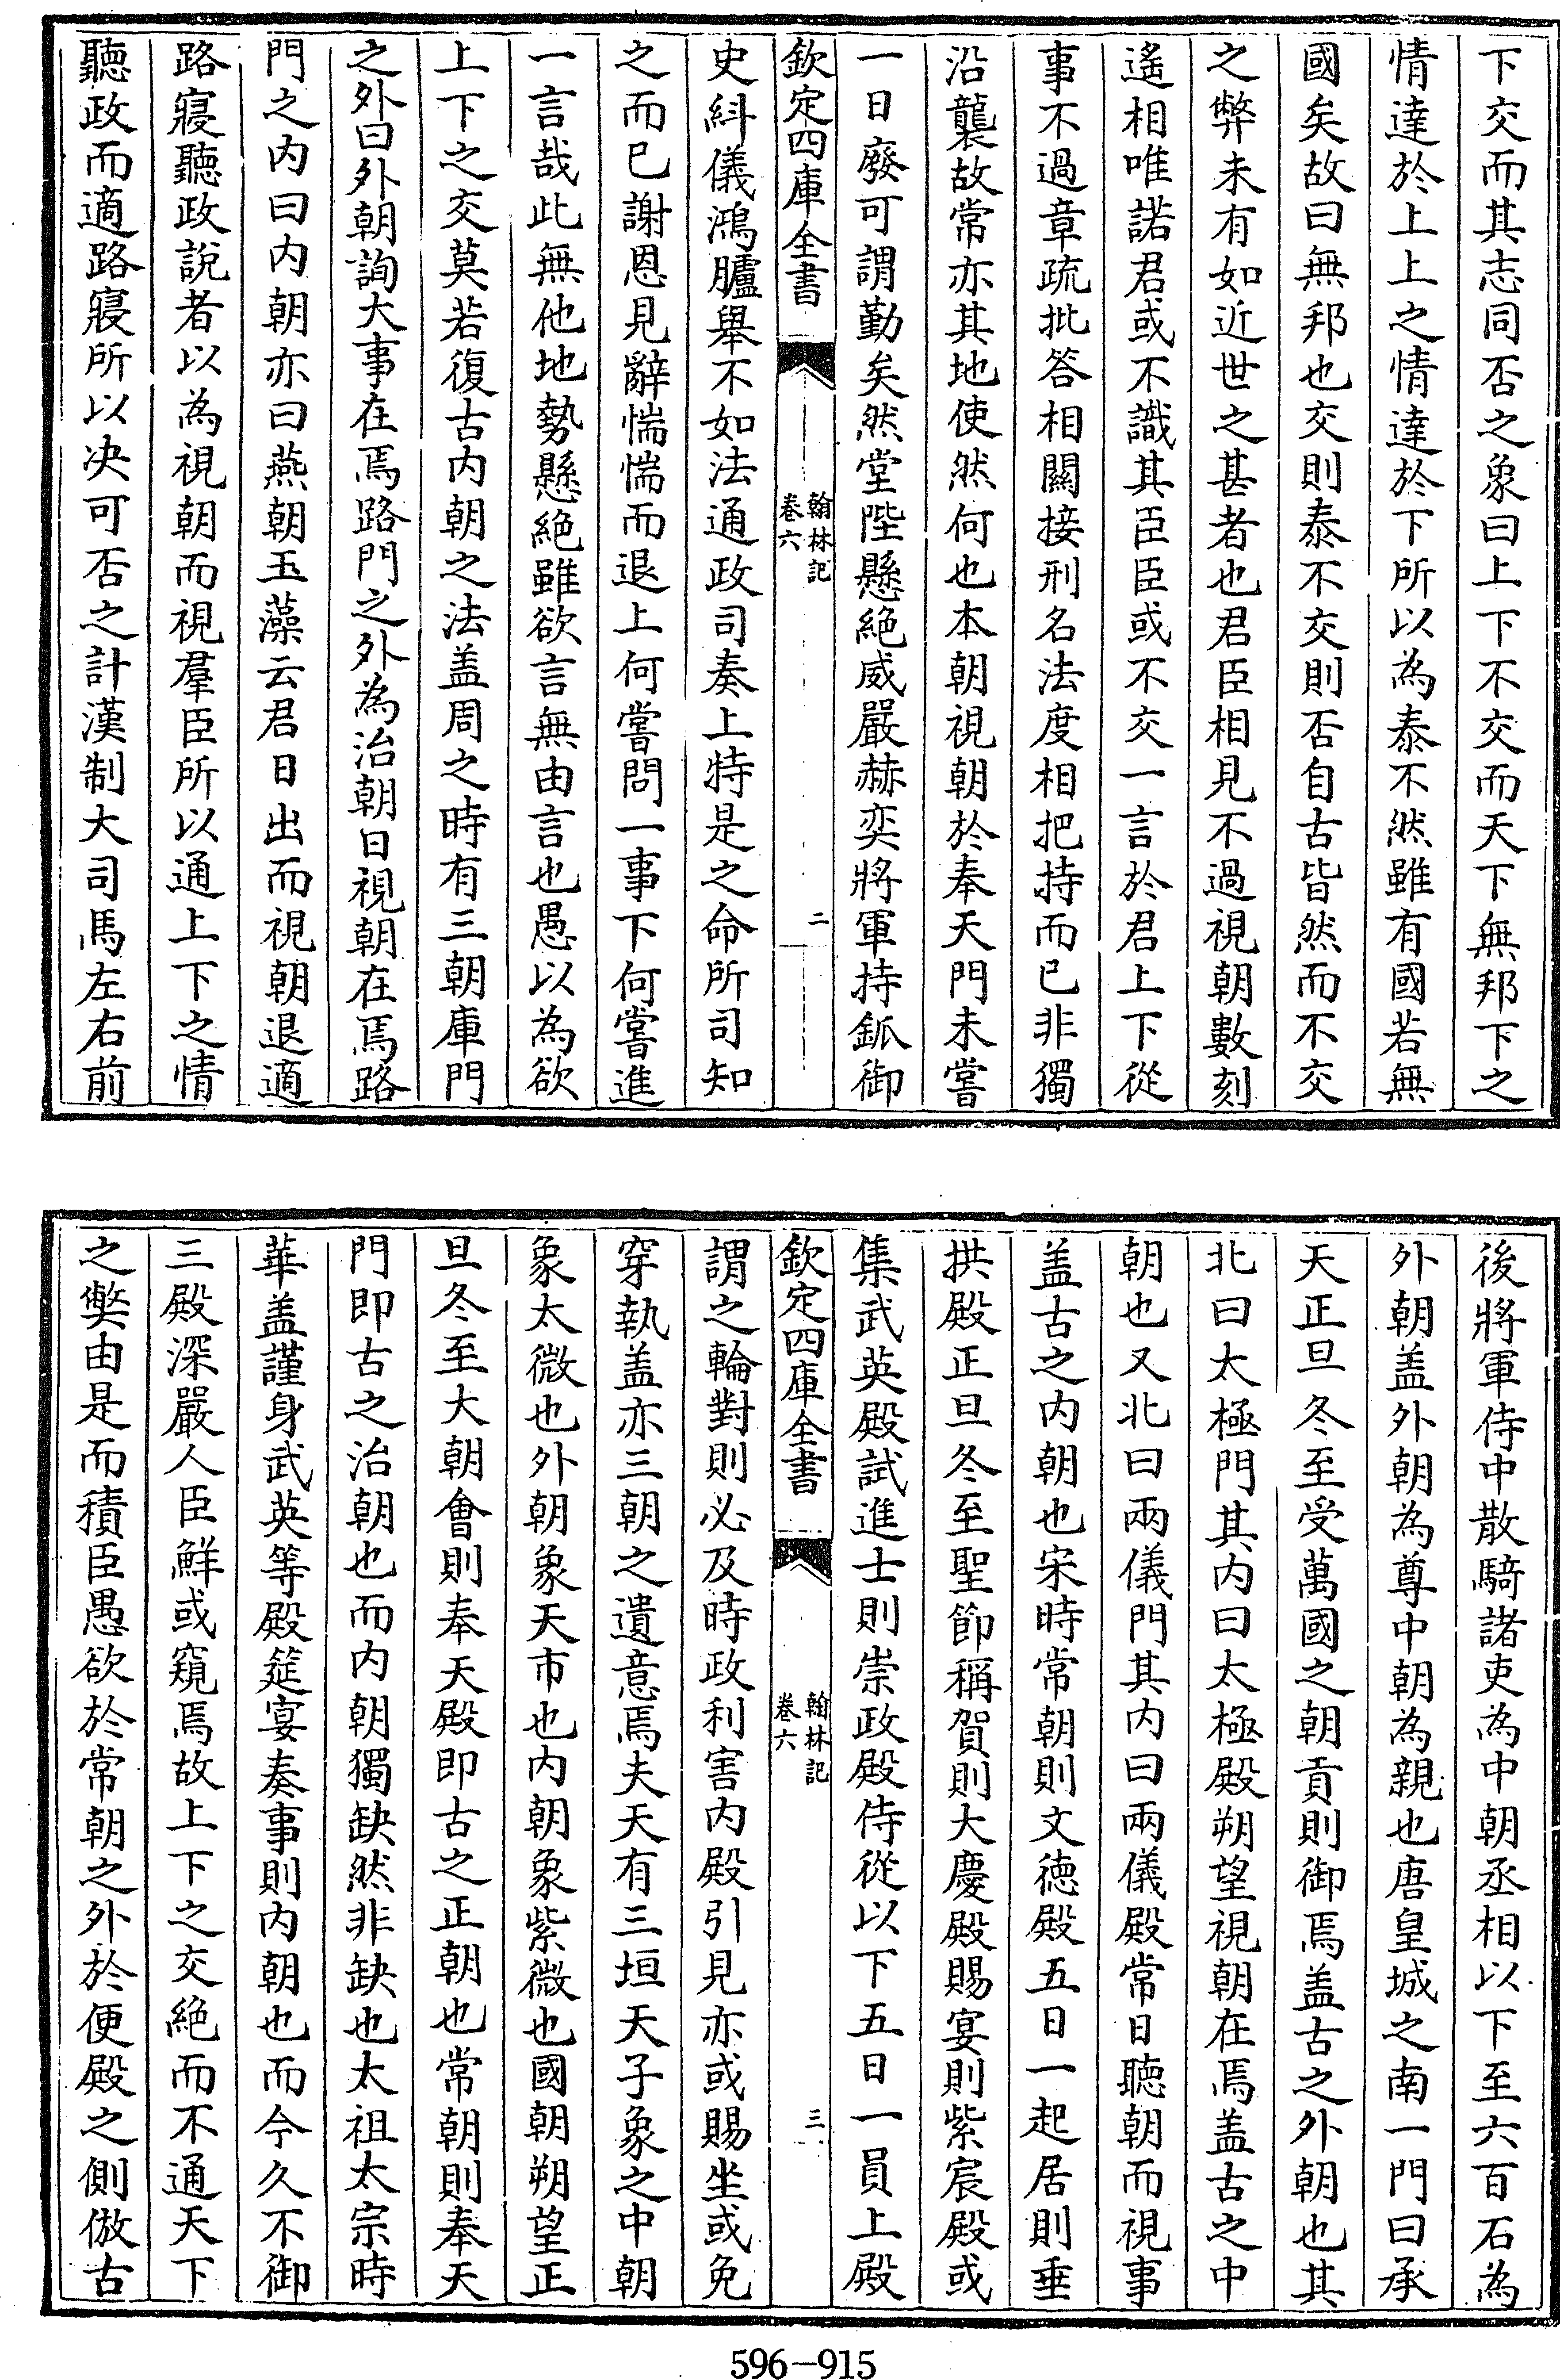 下交而其志同否之象曰上下不交而天下無邦下之
情達於上上之情達於下所以為泰不然雖有國若無
國矣故曰無邦也交則泰不交則否自古皆然而不交
之弊未有如近世之甚者也君臣相見不過視朝數刻
遙相唯諾君或不識其臣臣或不交一言於君上下從
事不過章疏批答相關接刑名法度相把持而已非獨
沿襲故常亦其地使然何也本朝視朝於奉天門未嘗
一日廢可謂勤矣然堂陛懸絕威嚴赫奕將軍持鈲御
欽定四庫全書
翰林記
卷六
二
史糾儀鴻臚舉不如法通政司奏上特是之命所司知
之而已謝恩見辭惴惴而退上何嘗問一事下何嘗進
一言哉此無他地勢懸絕雖欲言無由言也愚以為欲
上下之交莫若復古内朝之法盖周之時有三朝庫門
之外曰外朝詢大事在焉路門之外為治朝日視朝在焉路
門之内曰内朝亦曰燕朝玉藻云君日出而視朝退適
路寢聽政說者以為視朝而視羣臣所以通上下之情
聽政而適路寢所以决可否之計漢制大司馬左右前
後將軍侍中散騎諸吏為中朝丞相以下至六百石為
外朝盖外朝為尊中朝為親也唐皇城之南一門曰承
天正旦冬至受萬國之朝貢則御焉盖古之外朝也其
北曰太極門其内曰太極殿朔望視朝在焉盖古之中
朝也又北曰兩儀門其内曰兩儀殿常日聽朝而視事
盖古之内朝也宋時常朝則文德殿五日一起居則垂
拱殿正旦冬至聖節稱賀則大慶殿賜宴則紫宸殿或
集武英殿試進士則崇政殿侍從以下五日一員上殿
欽定四庫全書
翰林記
卷六
三
謂之輪對則必及時政利害内殿引見亦或賜坐或免
穿執盖亦三朝之遺意焉夫天有三垣天子象之中朝
象太微也外朝象天市也内朝象紫微也國朝朔望正
旦冬至大朝會則奉天殿即古之正朝也常朝則奉天
門即古之治朝也而内朝獨缺然非缺也太祖太宗時
華盖謹身武英等殿筵宴奏事則内朝也而今久不御
三殿深嚴人臣鮮或窺焉故上下之交絶而不通天下
之弊由是而積臣愚欲於常朝之外於便殿之側倣古
596-915